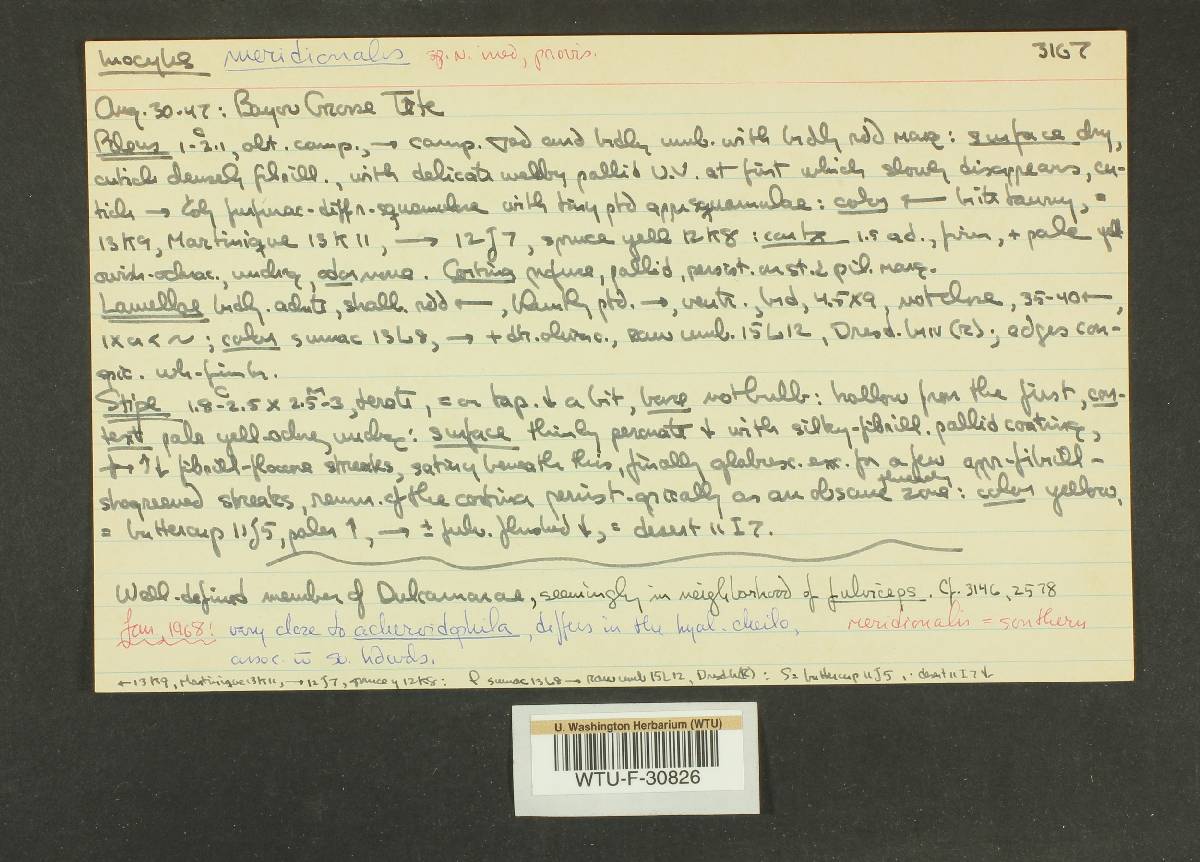 Inocybe meridionalis sp. n. ined, provis. 3167
Aug. 30-47: Bayou Grosse Tête
Pileus 1-2.1, obt. camp., → camp. and brdly umb. with brdly rdd marg: surface dry,
cuticle densely fibrill., with delicate webby pallid U.V. at first which slowly disappears, cu-
ticle → furfurac-diffr-squamulose with tiny ptd appr squamulae: color ← brite tawny, =
13K9, Martinique 13K11, → 12J7, spruce yell 12K8: contx 1.5 ad., firm, + pale yell
owish-ochrac., undrg, odor none. Cortina profuse, pallid, persist. on st. & pil. marg.
Lamellae brdly. adnte, shall. rdd ←, bluntly ptd. →, ventr., brd, 4.5X9, not close, 35-40←,
1X a < ~; color sumac 13L8, → + dk. olivac., raw umb. 15L12, Dresd. brn (R); edges con-
spic. wh-fimbr.
Stipe 1.8-2.5 c x 2.5-3 m, terete, = or tap. ↓ a bit, base not bulb: hollow from the first, con-
text pale yell-ochre, undrg: surface thinly peronate ↓ with silky-fibrill. pallid coating,
→ ↑↓ fibrill-floccose streaks, satiny beneath this, finally glabresc. exc. for a few appr-fibrill-
shagreened streaks, remn. of the cortina persist. apically as an obscure fibrillose zone: color yellow,
= buttercup 11J5, paler ↑, → ± fulv. flushed ↓, = desert 11I7.
Well-defined member of Dulcamarae, seemingly in neighborhood of fulviceps. Cf. 3146, 2578
Jan, 1968: very close to acheroidophila, differs in the hyal. cheilo, meridionalis = southern
assoc. w so. hdwds.
← 13K9, Martinique 13K11, → 12J7, spruce y 12K8: P sumac 13L8 → raw umb 15L12, Dresd br(R): S= buttercup 11J5, desert 11I7↓
U. Washington Herbarium (WTU)
WTU-F-30826